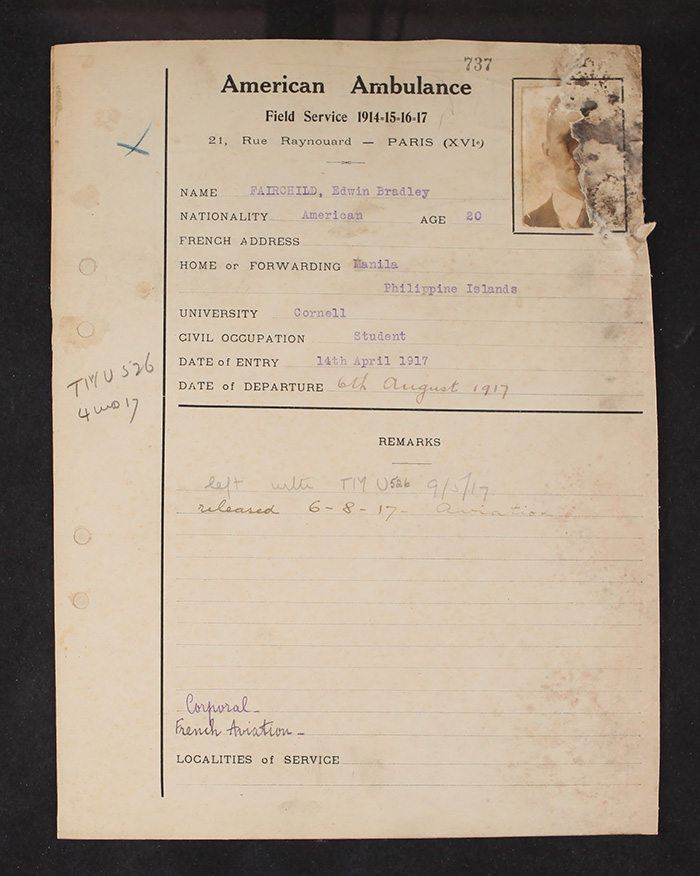 737
American Ambulance
Field Service 1914-15-16-17
21, Rue Raynouard — PARIS (XVIe)
NAME FAIRCHILD, Edwin Bradley
NATIONALITY American AGE 20
FRENCH ADDRESS
HOME or FORWARDING Manila
Philippine Islands
UNIVERSITY Cornell
CIVIL OCCUPATION Student
DATE of ENTRY 14th April 1917
DATE of DEPARTURE 6th August 1917
TMU 526
4 mo 17
REMARKS
left with TMU 526 9/5/17
released 6-8-17- Aviation
Corporal -
French Aviation -
LOCALITIES of SERVICE